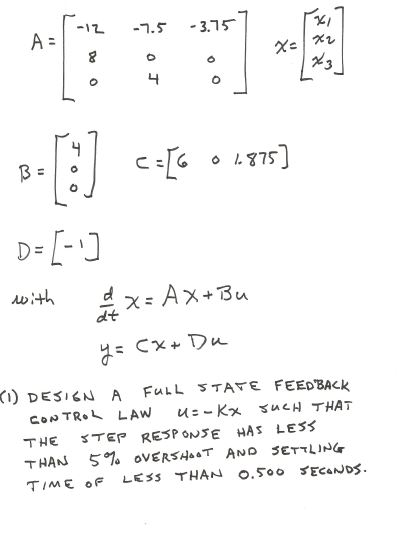 A = [-12 -7.5 -3.75
8 0 0
0 4 0]
x = [x1
x2
x3]
B = [4
0
0]
C = [6 0 1.875]
D = [-1]
with d/dt x = Ax + Bu
y = Cx + Du
(1) DESIGN A FULL STATE FEEDBACK
CONTROL LAW u = -Kx SUCH THAT
THE STEP RESPONSE HAS LESS
THAN 5% OVERSHOOT AND SETTLING
TIME OF LESS THAN 0.500 SECONDS.